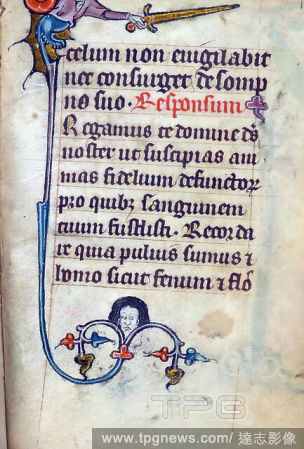 celum non euigilabit
nec consurget de somp
no suo. Responsum
Rogamus te domine ds
noster ut suscipias ani
mas fidelium defunctoꝝ
pro quibꝫ sanguinem
tuum fudisti. Recorda
re quia puluis sumus ⁊
homo sicut fenum ⁊ flo
TPG
www.tpgnews.com/ 達志影像